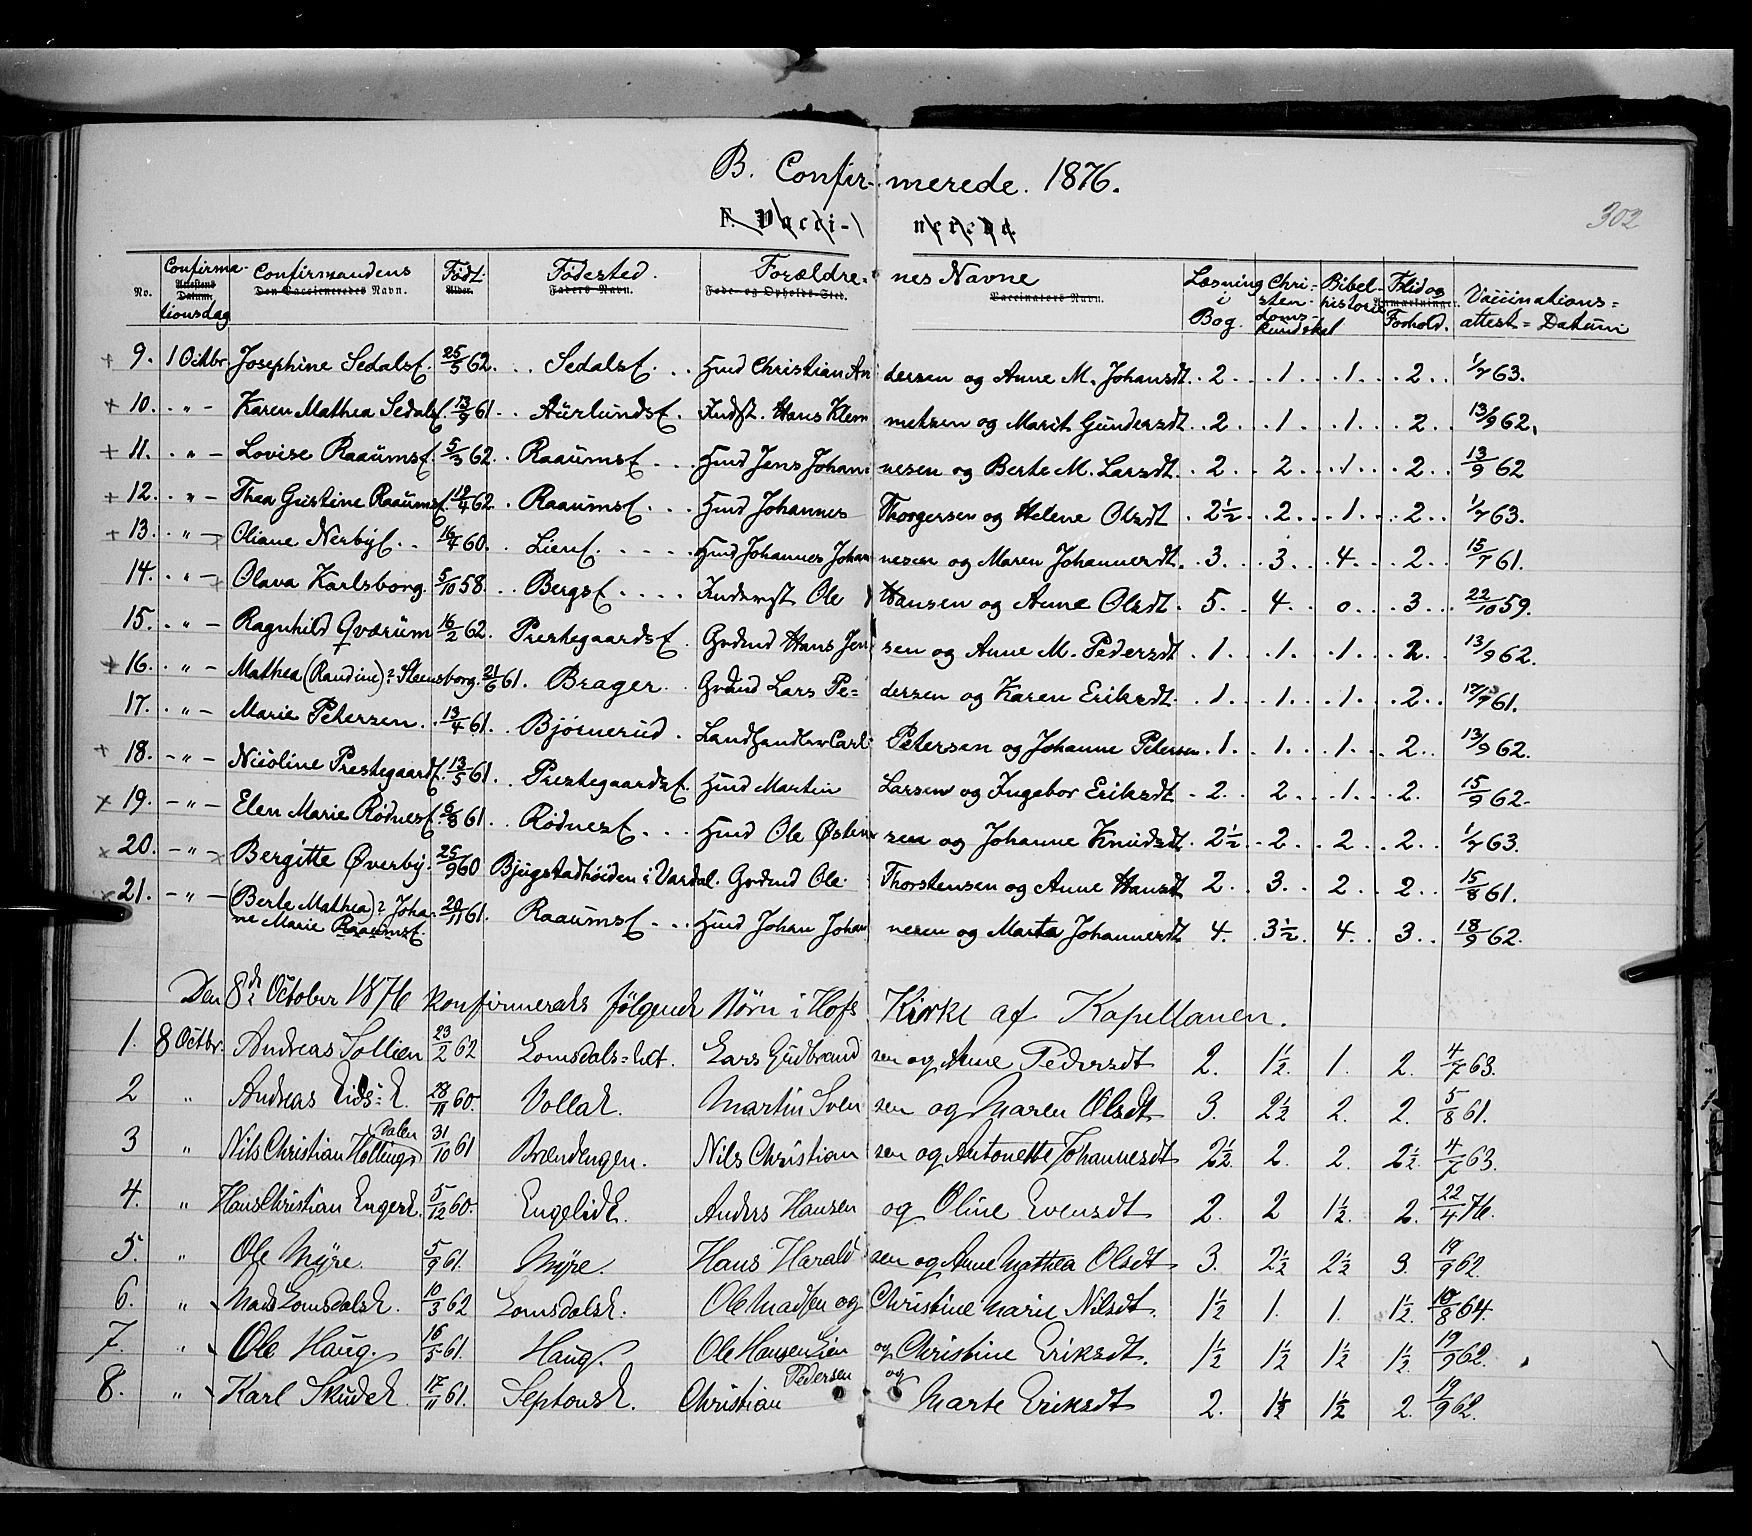 B. Confir- merede. 1876.
F. Vacci- nerede.
302
No. Confirma- tionsdag Attestens Datum. Confirmandens Den Vaccineredes Navn. Født. Alder. Fødested. Faders Navn. Forældre- nes Navne Føde- og Opholds-Sted. Vaccinators Navn. Læsning i Bog. Chri- sten- doms- kundskab Bibel- historie Flid og Forhold. Anmærkninger. Vaccinations= attest= Datum
9. 1 Octbr Josephine SedalsE. 25/5 62. Sedalsf. Hmd Christian An dersen og Anne M. Johansdt. 2. 1. 1. 2. 1/7 63.
10. " - Karen Mathea Sedalsf. 13/9 61. Aurlundsf. Indst. Hans Klem metsen og Marit Gundersdt. 2. 1. 1. 2. 13/9 62.
11. " - Lovise Raaumsf. 5/3 62. Raaumsf. Hmd Jens Johan nesen og Berte M. Larsdt. 2. 2. 1. 2. 13/9 62
12. " - Thea Gustine Raaumsf. 19/4 62. Raaumsf. Hmd Johannes Thorgersen og Helene Olsdt. 2½. 2. 1. 2. 1/7 63.
13. " - Oliane Nerbyf. 16/4 60. Lienf. Hmd Johannes Johan nesen og Maren Johannesdt. 3. 3. 4. 2. 15/7 61.
14. " - Olava Karlsborg. 5/10 58. Bergsf. Inderst Ole Hansen og Anne Olsdt. 5. 4. 0. 3. 22/10 59.
15. " - Ragnhild Qværum 16/2 62. Prestegaardsf. Grdmd Hans Jen sen og Anne M. Pedersdt. 1. 1. 1. 2. 13/9 62.
16. " - Mathea (Randine)? Steensborg. 21/6 61. Brager. Grdmd Lars Pe= dersen og Karen Eriksdt. 1. 1. 1. 2. 61.
17. " - Marie Petersen. 13/4 61. Bjørnerud. Landhandler Carl Petersen og Johanne Petersen. 1. 1. 1. 2. 13/9 62.
18. - " - Nicoline Prestegaardsf. 13/5 61. Prestegaardsf. Hmd Martin Larsen og Ingebor Eriksdt. 2. 2. 1. 2. 15/9 62.
19. - " - Elen Marie Rødnesf. 6/8 61. Rødnesf. Hmd Ole Østen sen og Johanne Knudsdt. 2½. 2. 2. 2. 1/7 63.
20. - " - Bergitte Øverby. 25/9 60 Bjugstadhøiden i Vardal. Grdmd Ole Thorstensen og Anne Hansdt 2. 3. 2. 2. 15/8 61.
21. - " - (Berte Mathea)? Joha- 20/11 61. Raaumsf. Hmd Johan Johan nesen og Marta Johannesdt. 4. 3½. 4. 3. 18/9 62.
ne Marie Raaumsf.
Den 8de October 1876 konfirmeredes følgende Børn i Hofs Kirke af Kapellanen.
1. 8 Octbr. Andreas Sollien 23/2 62 Lomsdals=hdt. Lars Gudbrand sen og Anne Pedersdt 2. 1½. 1. 2. 4/7 63.
2 " Andreas Eids=E. 28/11 60. VollaE. Martin Sven sen og Maren Olsdt 3. 2½ 2. 2. 5/8 61.
3 " Nils Christian Hellings dalen 31/10 61 Brændengen. Nils Christian sen og Antonette Johannesdt 2½. 2. 2. 2½. 4/7 63.
4. " Hans Christian EngerE. 5/12 60. EngelidE. Anders Hansen og Oline Evensdt 2. 2 1½. 2. 22/4 76.
5. " Ole Myre. 5/9 61. Myre. Hans Harald sen og Anne Mathea Olsdt 3. 2½ 2½ 3. 19/9 62.
6. " Mads LomsdalsE. 10/3 62 LomsdalsE. Ole Madsen og Christine Marie Nilsdt. 1½ 1. 1. 1½. 10/8 64.
7. " Ole Haug. 16/5 61. Haug. Ole Hansen Lien og Christine Eriksdt. 1½ 1½ 1½ 1½. 19/9 62.
8. " Karl SkudeE. 17/11 61. SeptonsE. Christian Pedersen og Marte Eriksdt 2. 1½ 1½ 2. 19/9 62.